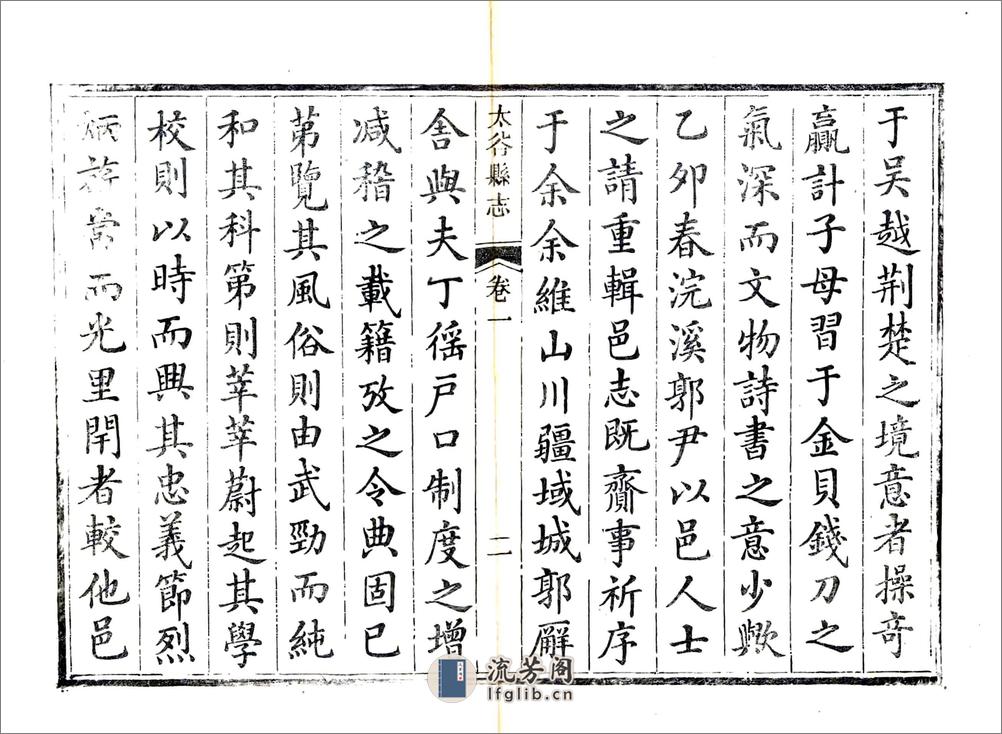 于吳越荆楚之境意者操竒
贏計子母習于金貝錢刀之
氣深而文物詩書之意少歟
乙夘春浣溪郭尹以邑人士
之請重輯邑志既齎事祈序
于余余維山川疆域城郭廨
太谷縣志
卷一
二
舍與夫丁徭戸口制度之增
减稽之載籍攷之令典固已
苐覽其風俗則由武勁而純
和其科第則莘莘蔚起其學
校則以時而興其忠義節烈
炳旂常而光里閈者較他邑
流芳阁
lfglib.cn